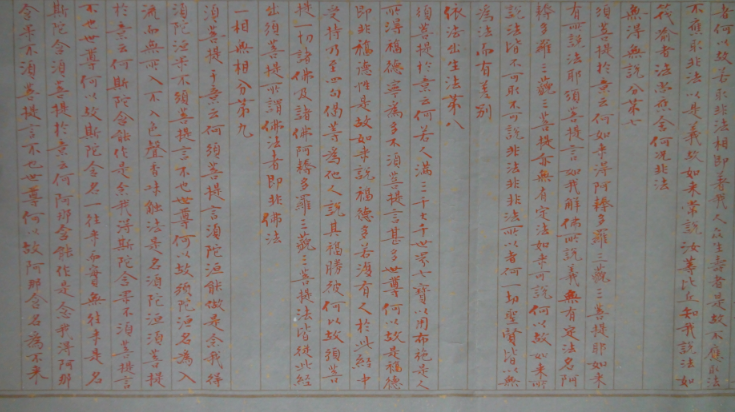 者何以故若取非法相即著我人众生壽者是故不應取法
不應取非法以是義故如来常說汝等比丘知我說法如
筏喻者法尚應舍何况非法
無得無說分第七
須菩提於意云何如来得阿耨多羅三藐三菩提耶如来
有所說法耶須菩提言如我解佛所說義無有定法名阿
耨多羅三藐三菩提亦無有定法如来可說何以故如来所
說法皆不可取不可說非法非非法所以者何一切聖賢皆以無
為法而有差别
依法出生法第八
須菩提於意云何若人滿三千大千世界七寶以用布施是人
所得福德寧為多不須菩提言甚多世尊何以故是福德
即非福德性是故如来說福德多若復有人於此經中
受持乃至四句偈等為他人說其福勝彼何以故須菩
提一切諸佛及諸佛阿耨多羅三藐三菩提法皆從此經
出須菩提所謂佛法者即非佛法
一相無相分第九
須菩提于意云何須菩提言須陀洹能做是念我得
須陀洹果不須菩提言不也世尊何以故須陀洹名為入
流而無所入不入色聲香味觸法是名須陀洹須菩提
於意云何斯陀含能作是念我得斯陀含果不須菩提言
不也世尊何以故斯陀含名一往来而實無往来是名
斯陀含須菩提於意云何阿那含能作是念我得阿那
含果不須菩提言不也世尊何以故阿那含名為不来